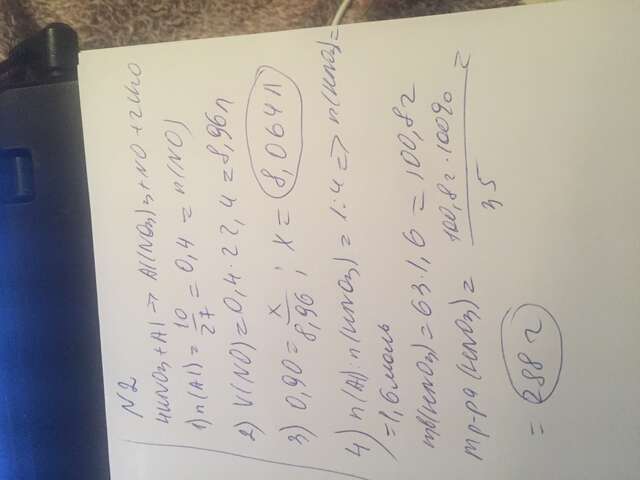 N2
4HNO3 + Al → Al(NO3)3 + NO + 2H2O
1) n(Al) = 10/27 = 0,4 = n(NO)
2) V(NO) = 0,4 · 22,4 = 8,96 л
3) 0,90 = x/8,96 ; x = 8,064 л
4) n(Al) : n(HNO3) = 1:4 => n(HNO3) =
= 1,6 моль
mв(HNO3) = 63 · 1,6 = 100,8 г
mр-ра (HNO3) = 100,8 г · 100% / 35 =
= 288 г